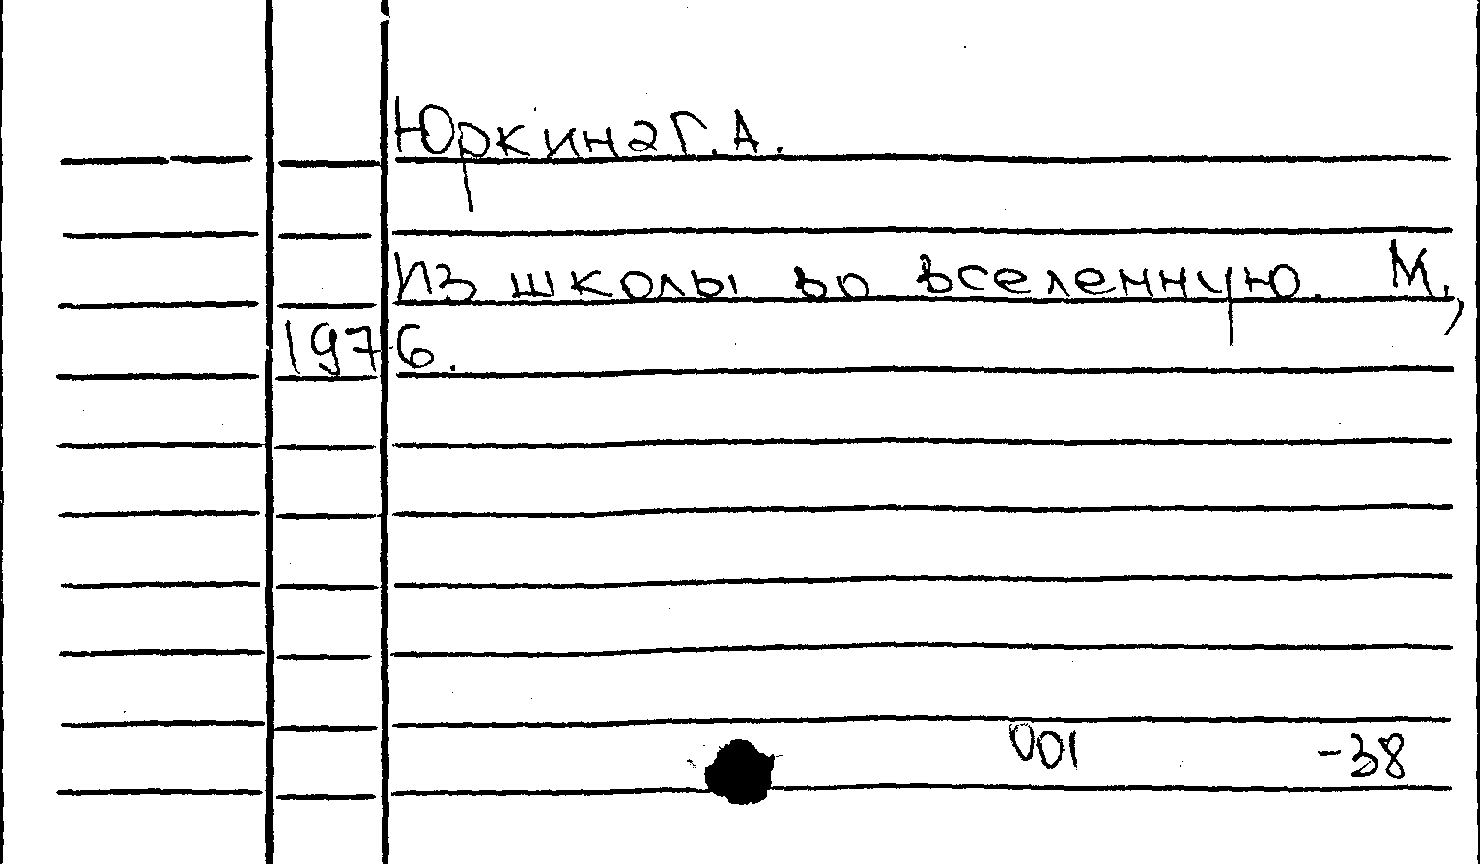 Юркина Г.А.
Из школы во вселенную. М.,
1976.
001 -38